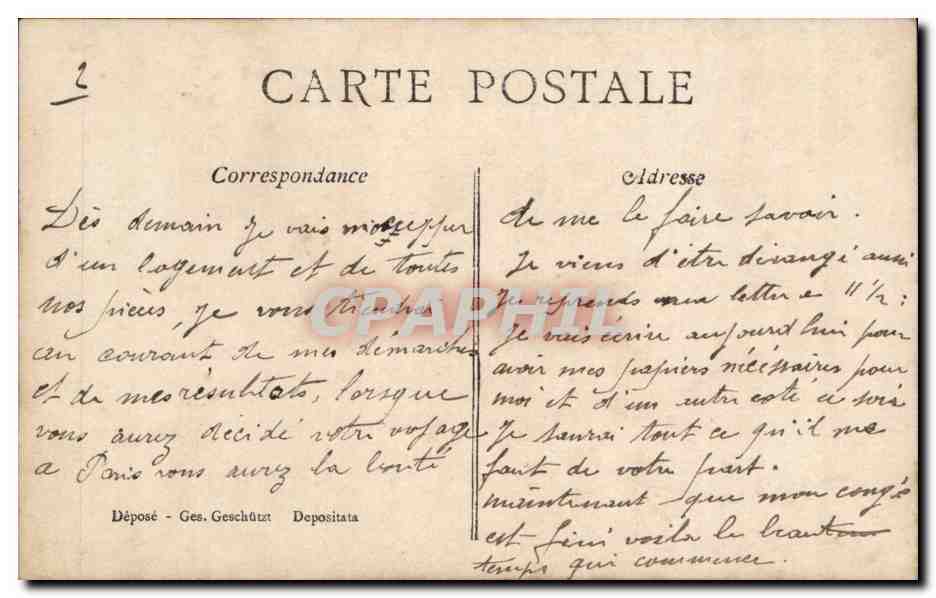 2
CARTE POSTALE
Correspondance
Dès demain je vais m'occupper
d'un logement et de toutes
nos pièces, je vous tiendrai
au courant de mes démarches
et de mes résultats, lorsque
vous aurez décidé votre voyage
a Paris vous aurez la bonté
Déposé - Ges. Geschützt Depositata
Adresse
de me le faire savoir.
Je viens d'être dérangé aussi
Je reprends ma lettre a 11 1/2 :
Je vais écrire aujourd'hui pour
avoir mes papiers nécéssaires pour
moi et d'un autre coté ce soir
Je saurai tout ce qu'il me
faut de votre part.
maintenant que mon congé
est fini voila le beau
temps qui commence.
CPAPHIL